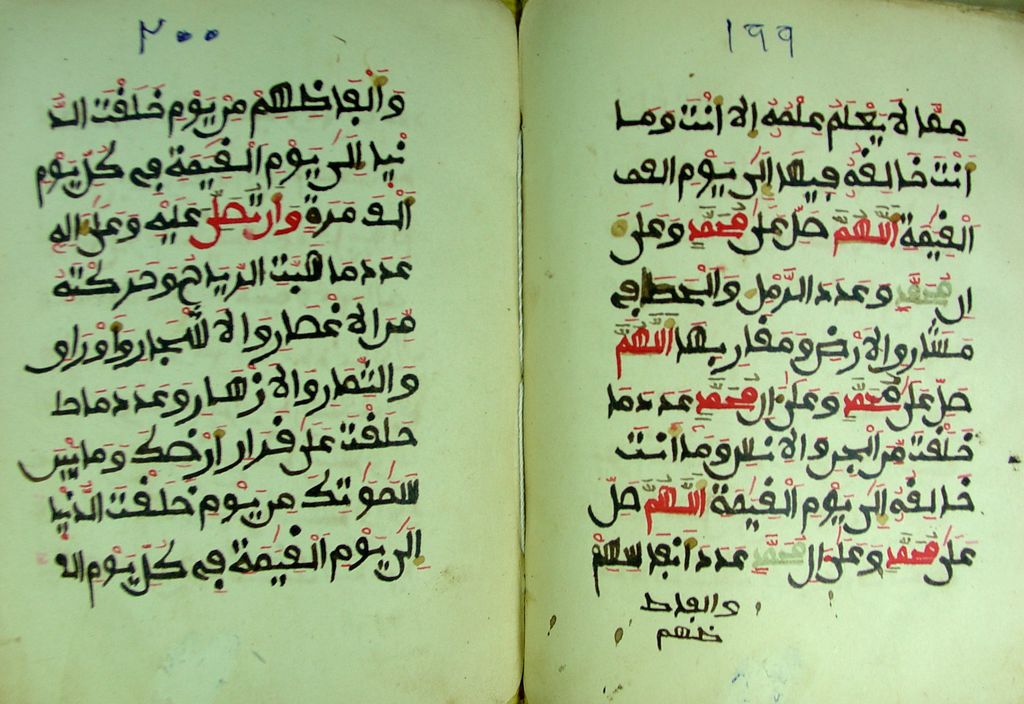 ١٩٩
مما لا يعلم علمه الا انت وما
انت خالقه فيها الى يوم الق
القيمة اللهم صل على محمد وعلى
ال محمد وعدد الرمل والحصا في
مشارق الارض ومغاربها اللهم
صل على محمد وعلى ال محمد عدد ما
خلقت من الجن والانس وما انت
خالقه الى يوم القيمة اللهم صل
على محمد وعلى ال محمد عدد انفاسهم
والفاظ
ظهم
٢٠٠
والفاظهم من يوم خلقت الد
نيا الى يوم القيمة في كل يوم
الف مرة وان تصل عليه وعلى اله
عدد ما هبت الرياح وحركته
من الاغصان والاشجار واوراق
والثمار والازهار وعدد ما
خلقت على قرار ارضك وما بين
سمواتك من يوم خلقت الدنيا
الى يوم القيمة في كل يوم الف